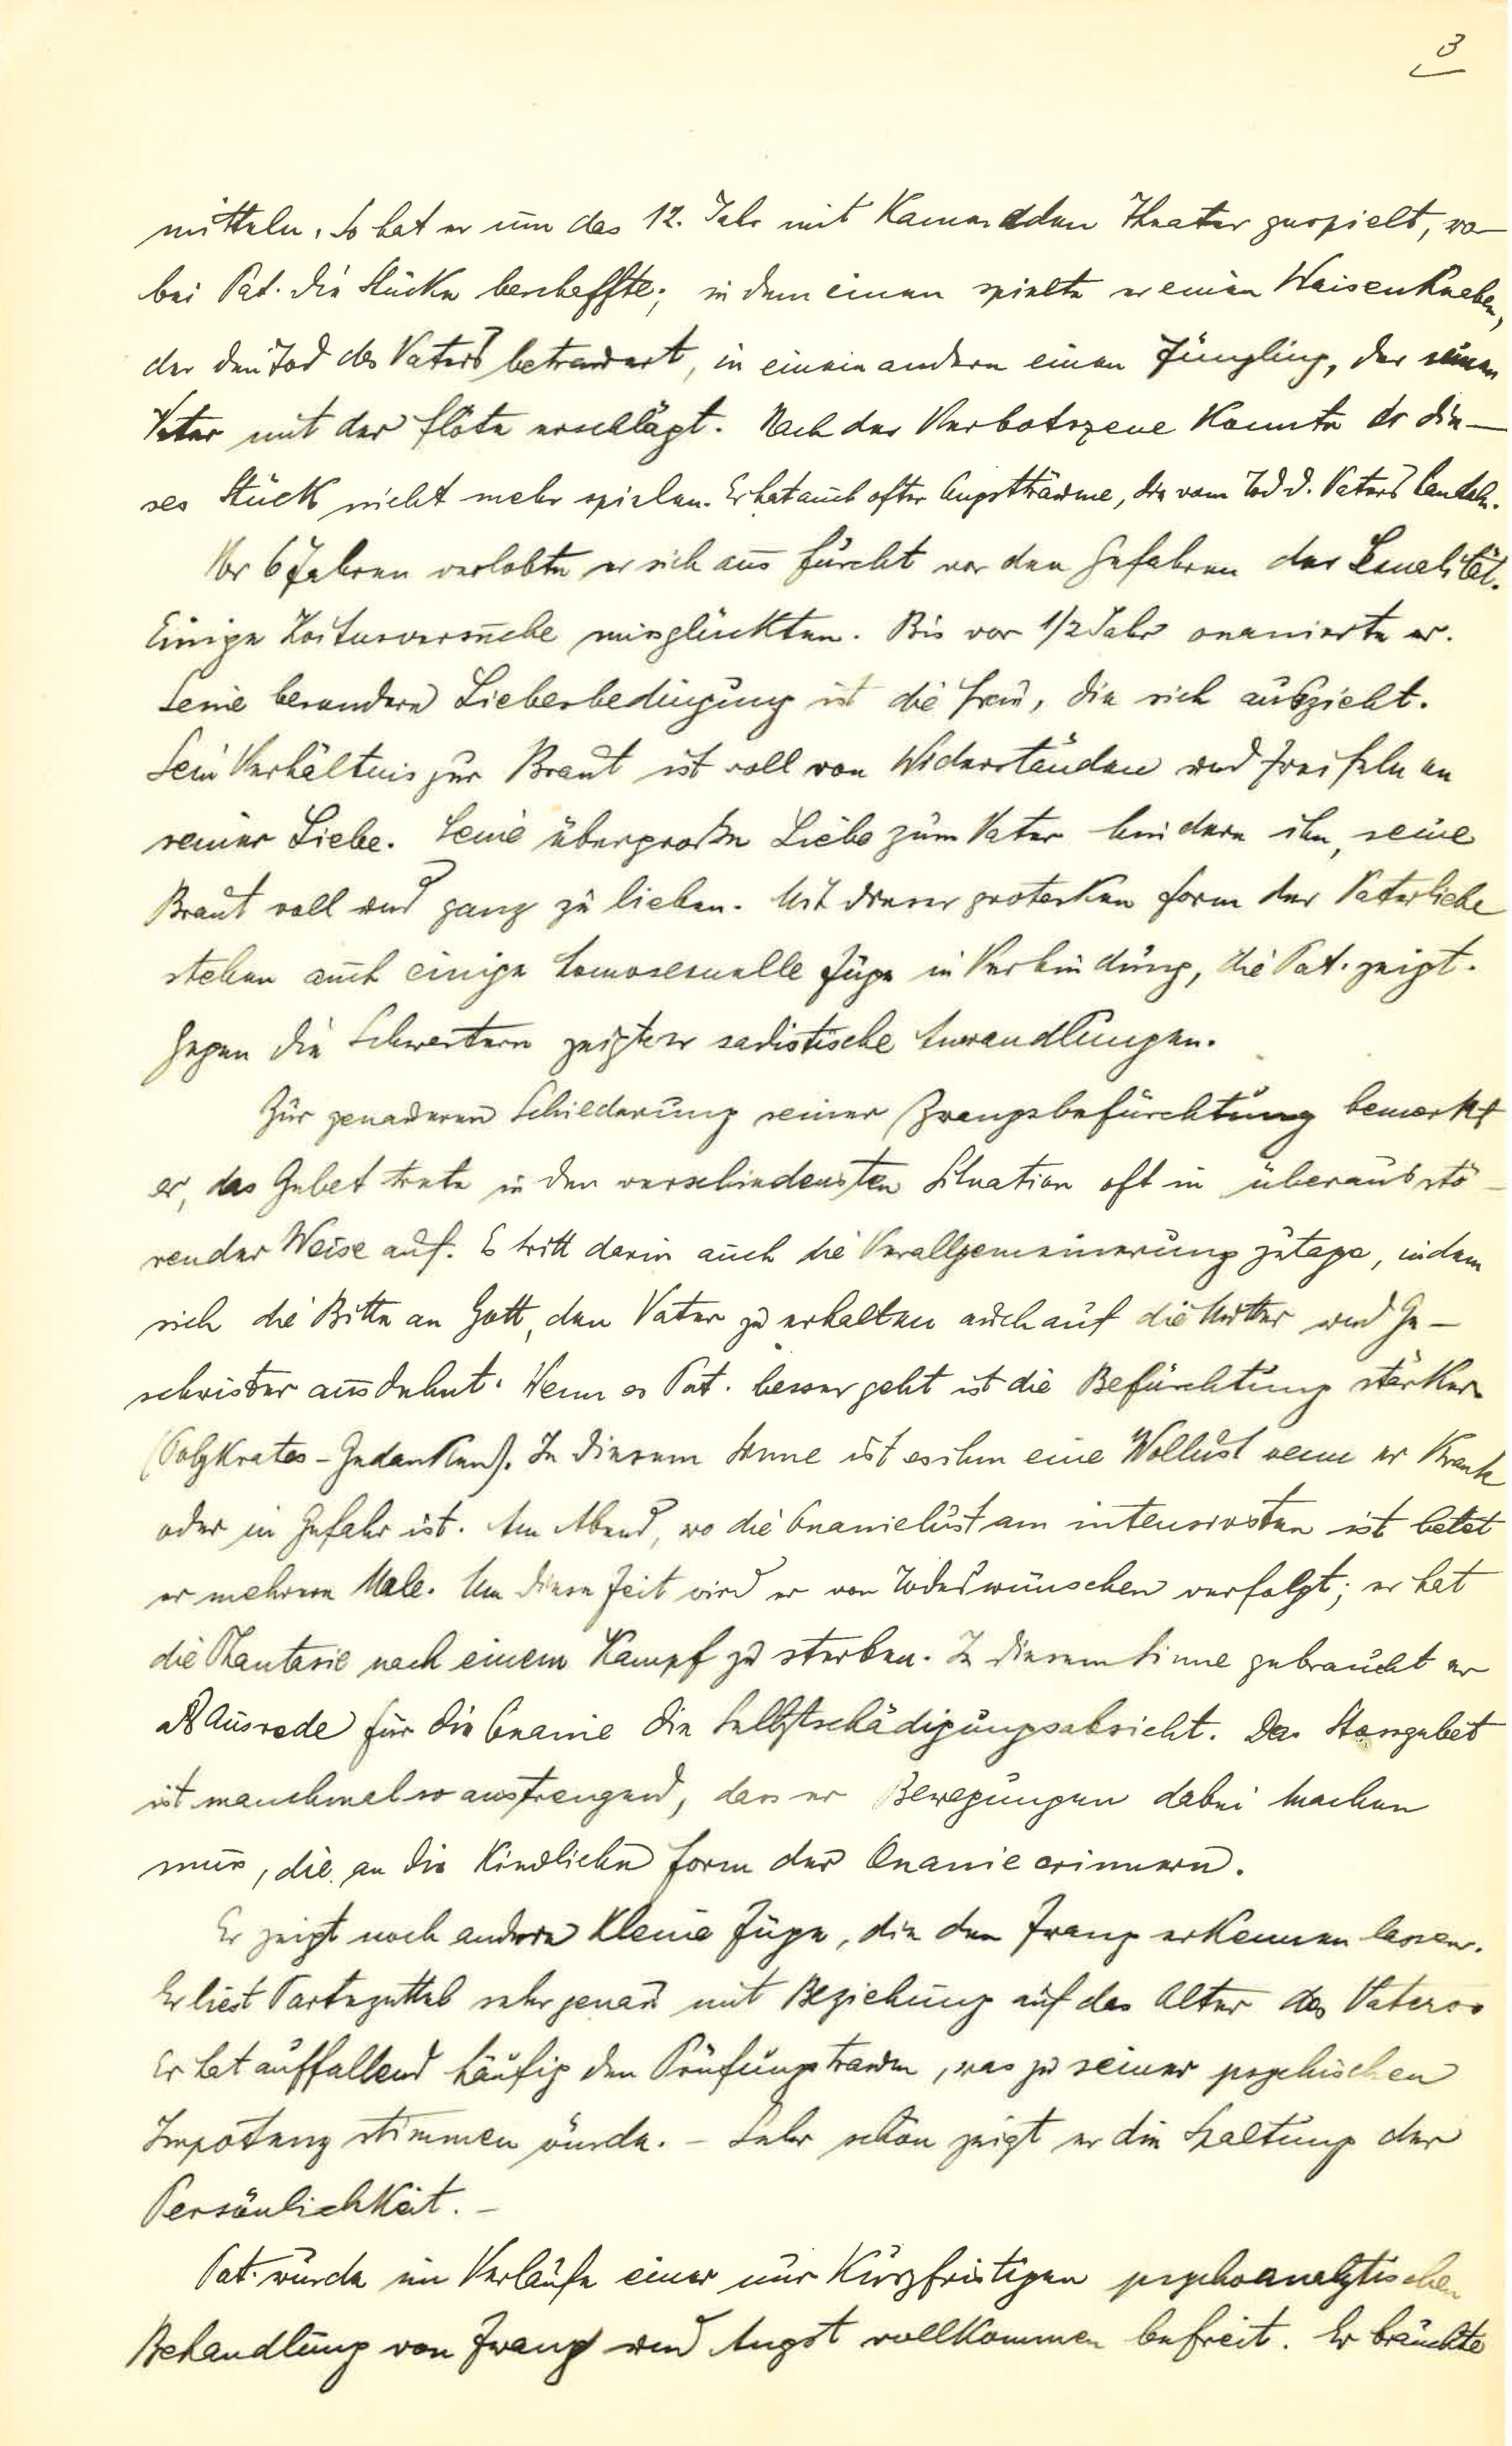 3
mitteln. So hat er um das 12. Jahr mit Kameraden Theater gespielt, wo-
bei Pat. die Stücke beschaffte; in dem einen spielte er einen Waisenknaben,
der den Tod des Vaters betrauert, in einem andern einen Jüngling, der seinen
Vater mit der Flöte erschlägt. Nach der Verbotszene konnte er die-
ses Stück nicht mehr spielen. Er hat auch öfter Angstträume, die vom Tod d. Vaters handeln.
Vor 6 Jahren verlobte er sich aus Furcht vor den Gefahren der Sexualität.
Einige Koitusversuche missglückten. Bis vor 1/2 Jahr onanierte er.
Seine besondere Liebesbedingung ist die Frau, die sich auszieht.
Sein Verhältnis zur Braut ist voll von Widerständen und Zweifeln an
seiner Liebe. Seine übergroße Liebe zum Vater hindere ihn, seine
Braut voll und ganz zu lieben. Mit dieser grotesken Form der Vaterliebe
stehen auch einige homosexuelle Züge in Verbindung, die Pat. zeigt.
Gegen die Schwestern zeigte er sadistische Anwandlungen.
Zur genaueren Schilderung seiner Zwangsbefürchtung bemerkt
er, das Gebet trete in den verschiedensten Situation oft in überaus stö-
render Weise auf. Es tritt darin auch die Verallgemeinerung zutage, indem
sich die Bitte an Gott, den Vater zu erhalten auch auf die Mutter und Ge-
schwister ausdehnt. Wenn es Pat. besser geht ist die Befürchtung stärker
(Polykrates-Gedanken). In diesem Sinne ist es ihm eine Wollust wenn er krank
oder in Gefahr ist. Am Abend, wo die Onanielust am intensivsten ist betet
er mehrere Male. Um diese Zeit wird er von Todeswünschen verfolgt; er hat
die Phantasie nach einem Kampf zu sterben. In diesem Sinne gebraucht er
als Ausrede für die Onanie die Selbstschädigungsabsicht. Das Stossgebet
ist manchmal so anstrengend, dass er Bewegungen dabei machen
muss, die an die kindliche Form der Onanie erinnern.
Er zeigt noch andere kleine Züge, die den Zwang erkennen lassen.
Er liest Partezettel sehr genau mit Beziehung auf das Alter des Vaters.
Er hat auffallend häufig den Prüfungstraum, was zu seiner psychischen
Impotenz stimmen würde. - Sehr schön zeigt er die Spaltung der
Persönlichkeit. -
Pat. wurde im Verlaufe einer nur kurzfristigen psychoanalytischen
Behandlung von Zwang und Angst vollkommen befreit. Er brauchte